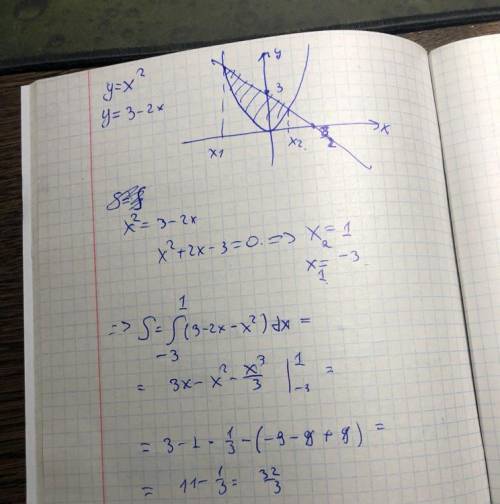 y = x²
y = 3 - 2x
y
3
x
x1
x2
3/2
x² = 3 - 2x
x² + 2x - 3 = 0. => x₂ = 1
x₁ = -3
=> S = ∫₋₃¹ (3 - 2x - x²) dx =
= 3x - x² - x³/3 |₋₃¹ =
= 3 - 1 - 1/3 - (-9 - 9 + 9) =
= 11 - 1/3 = 32/3